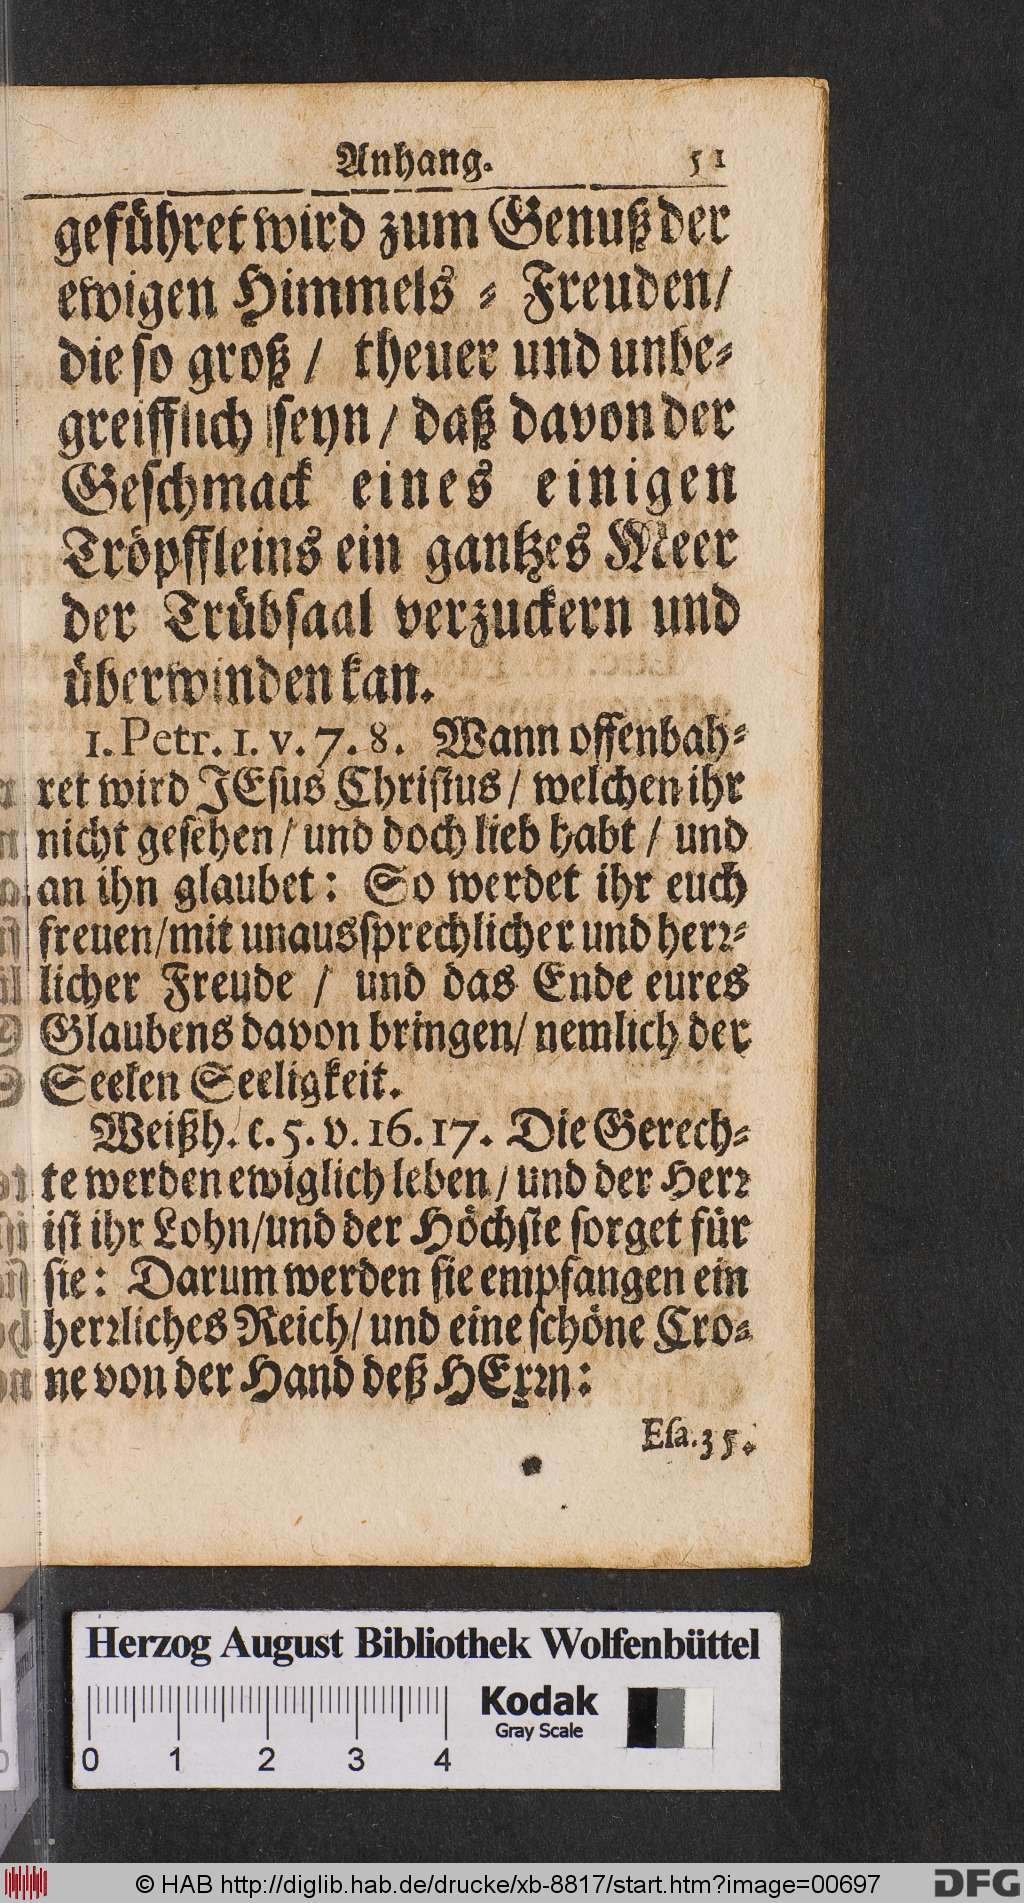 Anhang. 51
geführet wird zum Genuß der
ewigen Himmels = Freuden/
die so groß / theuer und unbe=
greifflich seyn / daß davon der
Geschmack eines einigen
Tröpffleins ein gantzes Meer
der Trübsaal verzuckern und
überwinden kan.
1. Petr. 1. v. 7. 8. Wann offenbah=
ret wird JEsus Christus / welchen ihr
nicht gesehen / und doch lieb habt / und
an ihn glaubet: So werdet ihr euch
freuen/mit unaussprechlicher und herr=
licher Freude / und das Ende eures
Glaubens davon bringen/ nemlich der
Seelen Seeligkeit.
Weißh. c. 5. v. 16. 17. Die Gerech=
te werden ewiglich leben / und der Herr
ist ihr Lohn/und der Höchste sorget für
sie: Darum werden sie empfangen ein
herrliches Reich/ und eine schöne Cro=
ne von der Hand deß HErrn:
Esa. 35.
Herzog August Bibliothek Wolfenbüttel
Kodak
Gray Scale
0 1 2 3 4
© HAB http://diglib.hab.de/drucke/xb-8817/start.htm?image=00697
DFG